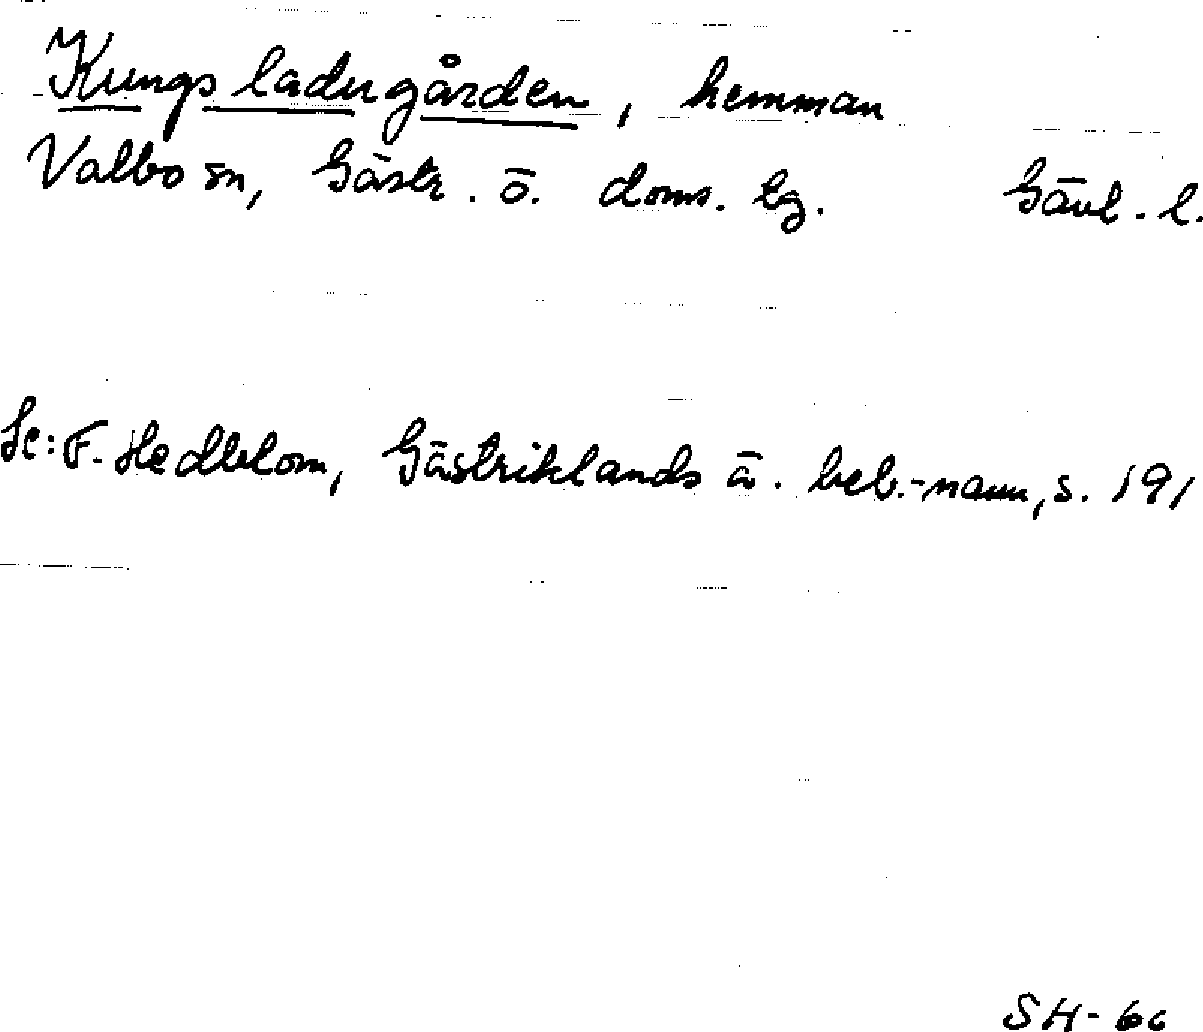 Kungsladugården, hemman
Valbo sn, Gästr. ö. doms. lg. Gävl. l.
Se: F. Hedblom, Gästriklands ä. beb.-namn, s. 191
SH-66